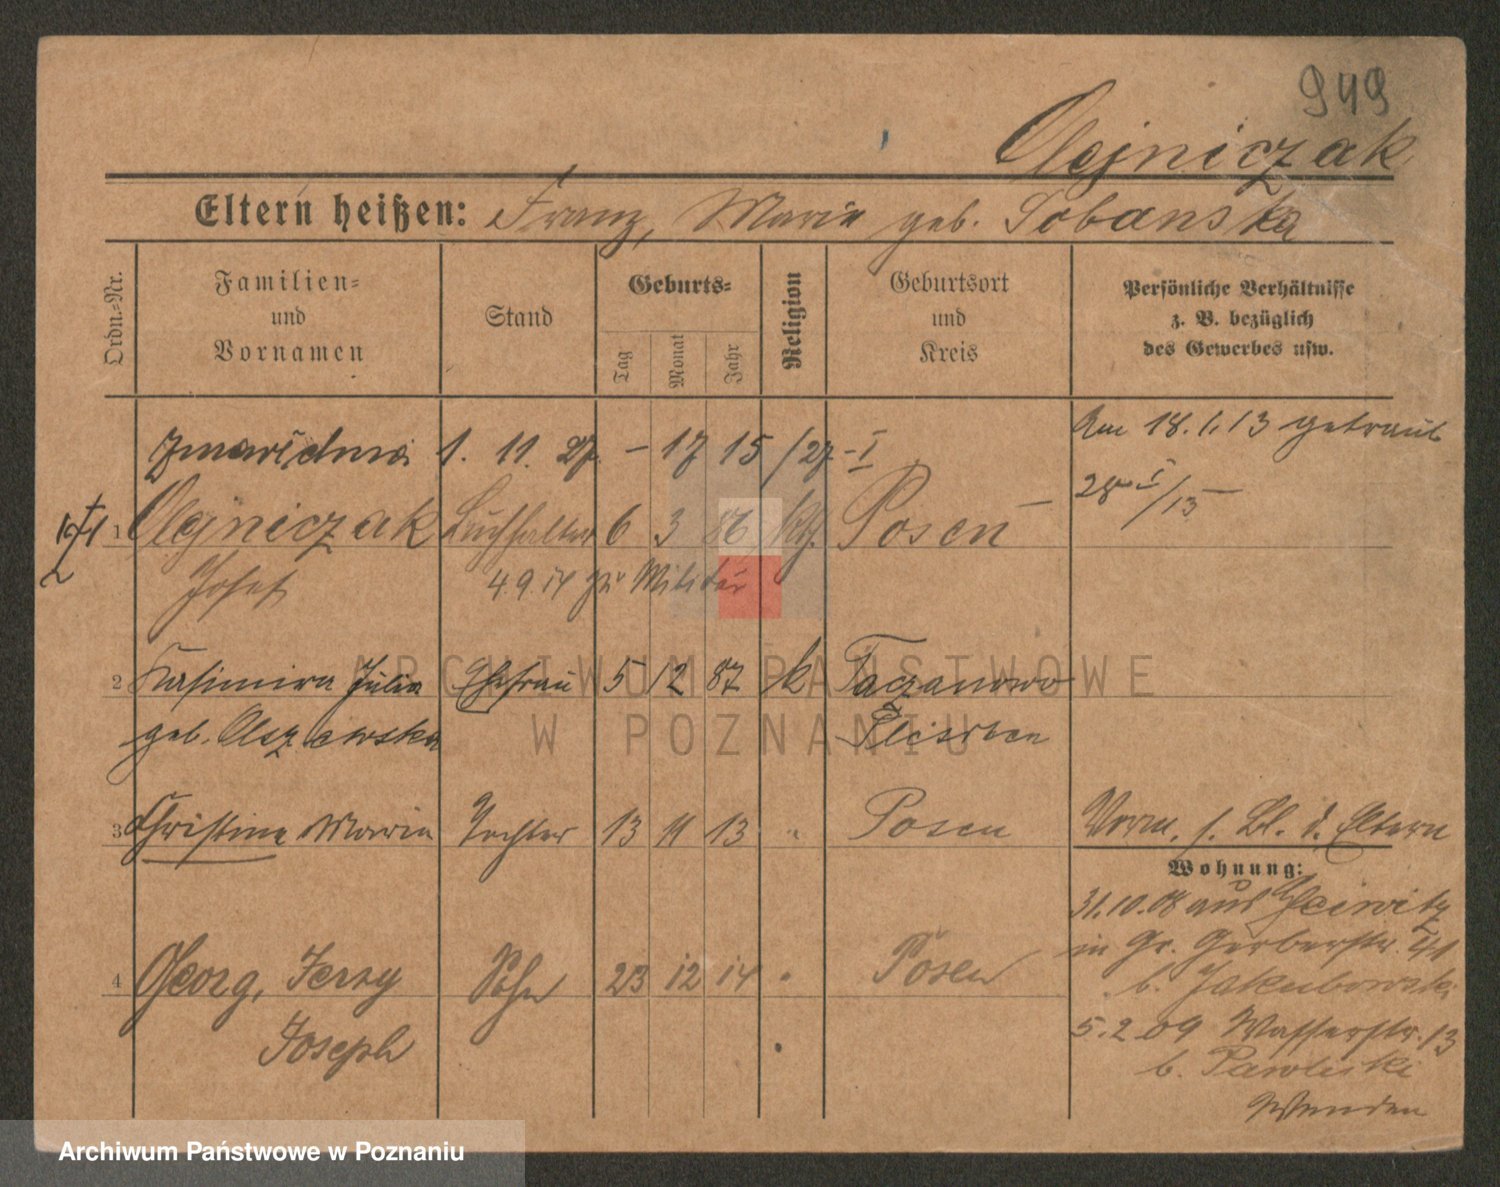 949
Olejniczak
Eltern heißen: Franz, Marie geb. Sobanska
Ordn.-Nr.
Familien-
und
Vornamen
Stand
Geburts-
Tag
Monat
Jahr
Religion
Geburtsort
und
Kreis
Persönliche Verhältnisse
z. B. bezüglich
des Gewerbes usw.
Am 18.1.13 getraut
1. 11. 27. - 17 15/27 - I
28 I/15
1 Olejniczak Buchhalter 6 3 86 kth. Posen
Josef 4.9.14 zu Militär
2 Kasimira Julia Ehefrau 5 12 87 k Taczanowo
geb. Olszewska Pleschen
3 Christine Maria Tochter 13 11 13 " Posen
Verm. s. Bl. d. Eltern
Wohnung:
31.10.08 aus Gleiwitz
in Gr. Gerberstr. 41
b. Jakubowski
4 Georg, Jerzy Sohn 23 12 14 " Posen
Joseph
5.2.09 Wasserstr. 13
b. Pawlicki
Wenden
ARCHIWUM PAŃSTWOWE
W POZNANIU
Archiwum Państwowe w Poznaniu